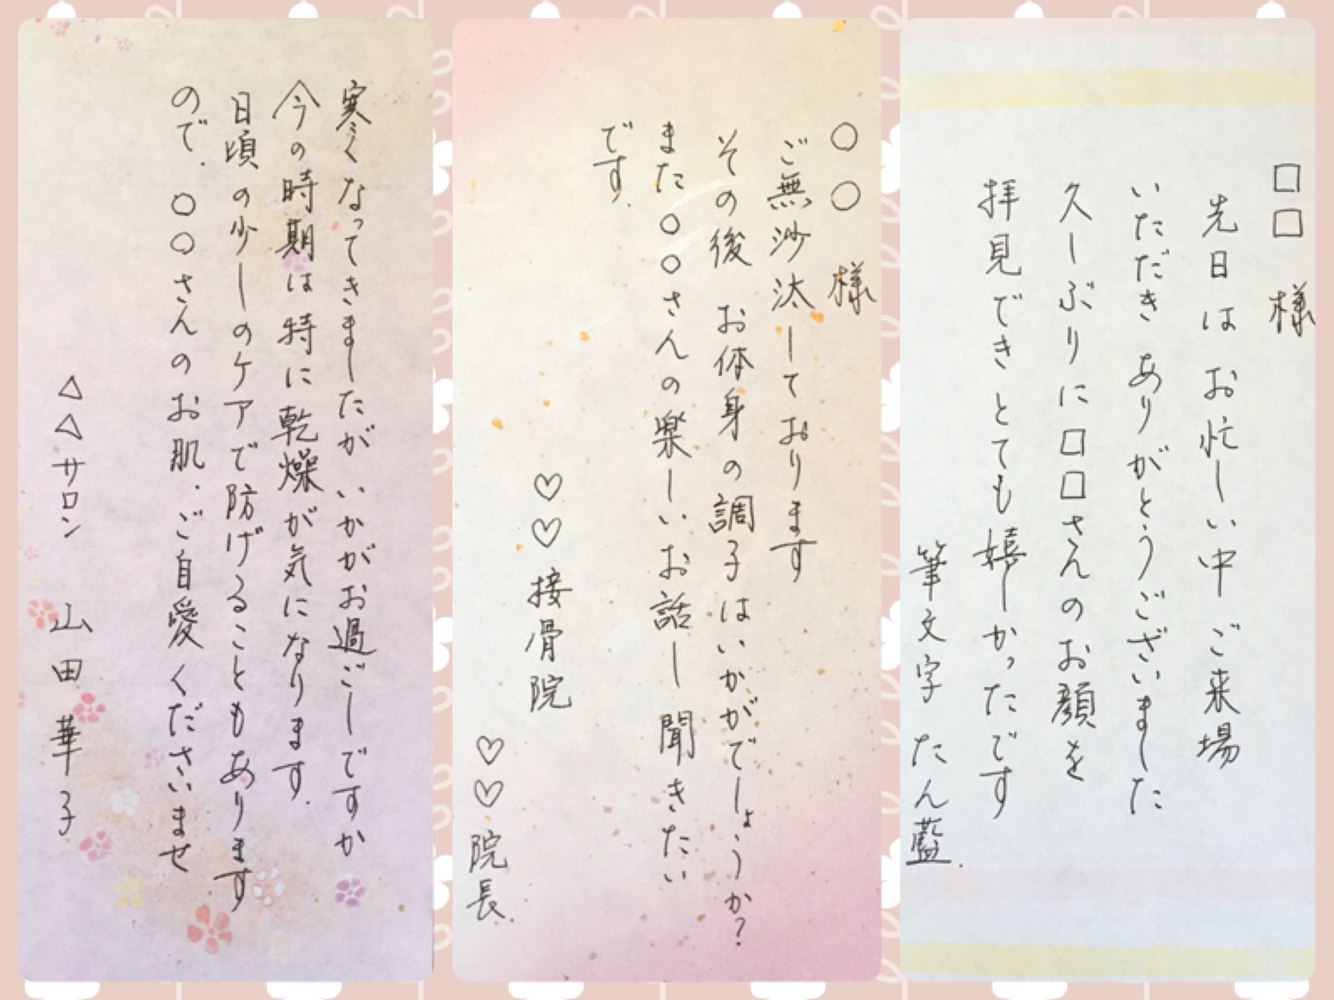 □□ 様
先日は お忙しい中 ご来場
いただき ありがとうございました
久しぶりに□□さんのお顔を
拝見でき とても 嬉しかったです
筆文字 たん藍.
○○ 様
ご無沙汰しております
その後 お体身の調子はいかがでしょうか?
また○○さんの楽しいお話し 聞きたい
です.
♡♡接骨院
♡♡院長.
寒くなってきましたが いかがお過ごしですか
今の時期は特に乾燥が気になります.
日頃の少しのケアで防げることもあります
ので. ○○さんのお肌.ご自愛くださいませ
△△サロン 山田華子